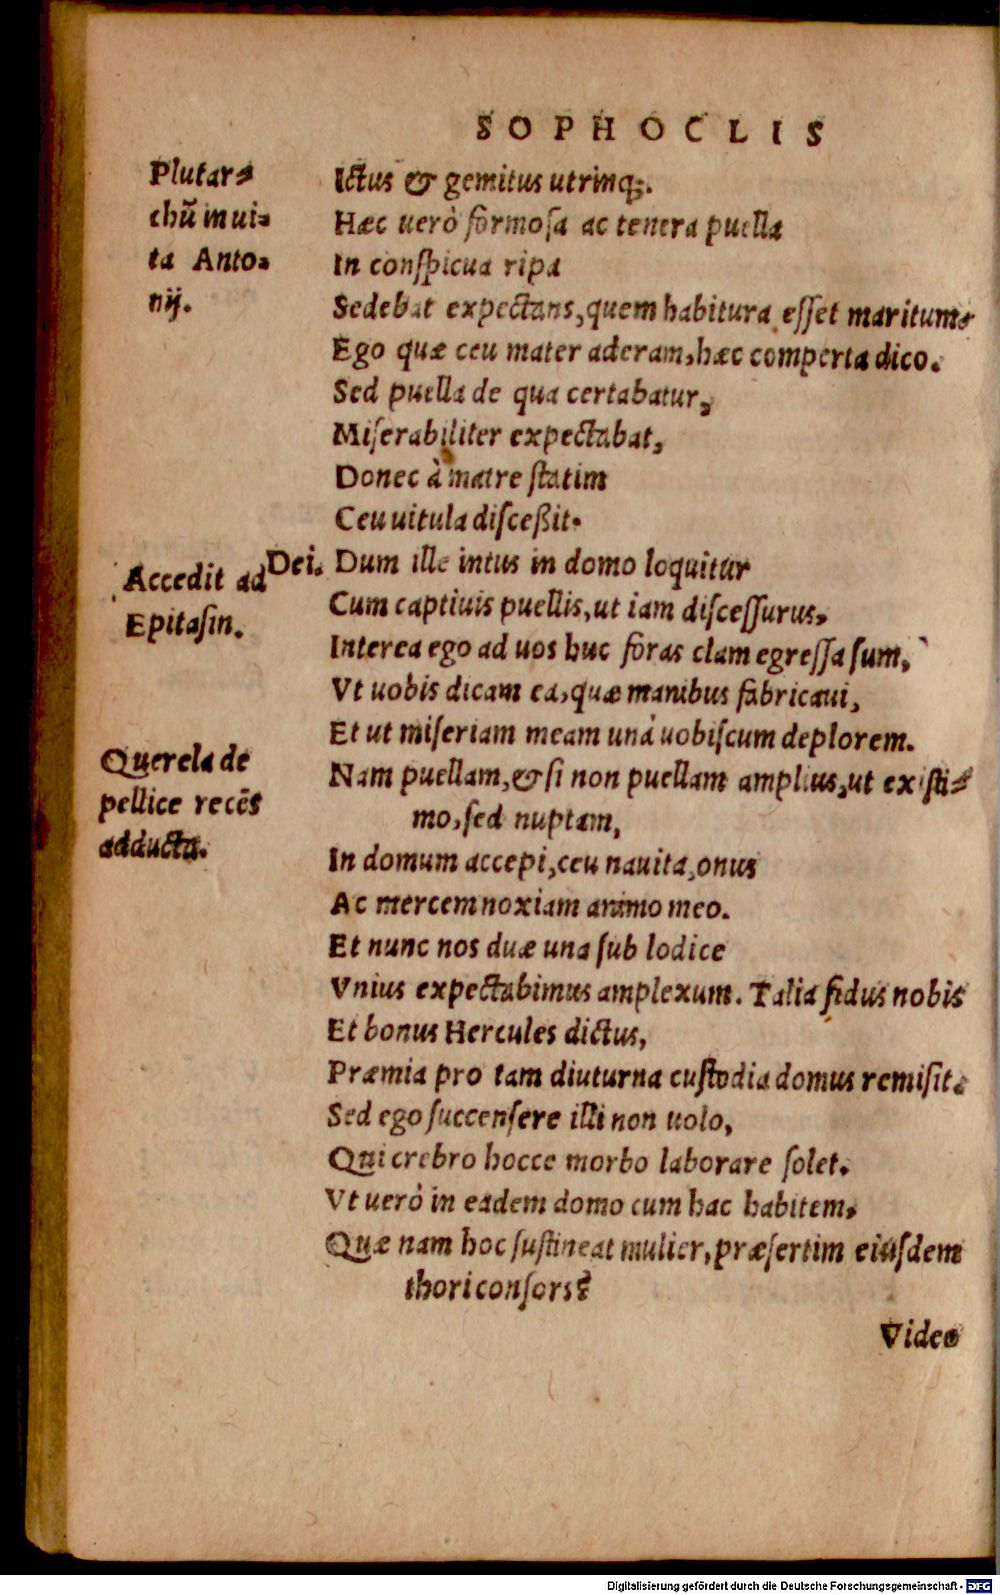 SOPHOCLIS
Plutar-
chũ in ui-
ta Anto-
nij.
Ictus & gemitus utrinq;.
Hæc uerò formosa ac tenera puella
In conspicua ripa
Sedebat expectans, quem habitura esset maritum.
Ego quæ ceu mater aderam, hæc comperta dico.
Sed puella de qua certabatur,
Miserabiliter expectabat,
Donec à matre statim
Ceu uitula disceßit.
Accedit ad
Epitasin.
Dei. Dum ille intus in domo loquitur
Cum captiuis puellis, ut iam discessurus,
Interea ego ad uos huc foras clam egressa sum,
Vt uobis dicam ea, quæ manibus fabricaui,
Et ut miseriam meam unà uobiscum deplorem.
Querela de
pellice recẽs
adducta.
Nam puellam, & si non puellam amplius, ut existi-
mo, sed nuptam,
In domum accepi, ceu nauita, onus
Ac mercem noxiam animo meo.
Et nunc nos duæ una sub lodice
Vnius expectabimus amplexum. Talia fidus nobis
Et bonus Hercules dictus,
Præmia pro tam diuturna custodia domus remisit.
Sed ego succensere illi non uolo,
Qui crebro hocce morbo laborare solet.
Vt uerò in eadem domo cum hac habitem,
Quæ nam hoc sustineat mulier, præsertim eiusdem
thori consors?
Video
Digitalisierung gefördert durch die Deutsche Forschungsgemeinschaft - DFG